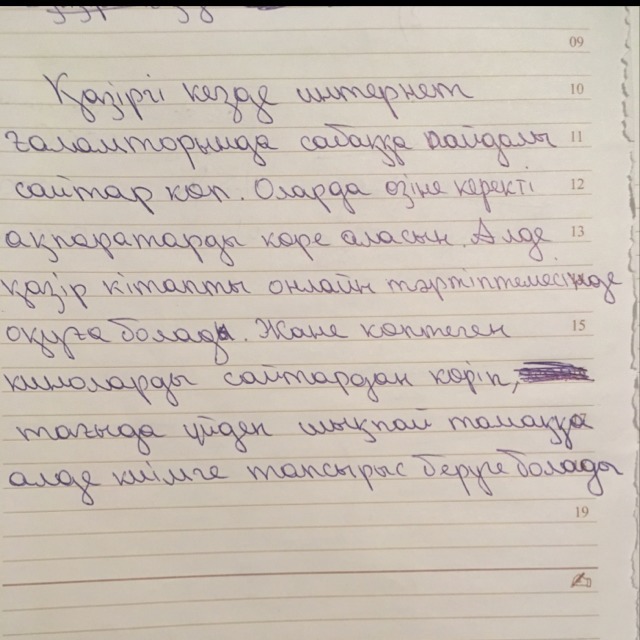 09
Қазіргі кезде интернет
10
ғаламторында сабаққа пайдалы
11
сайтар коп. Оларда озіне керекті
12
ақпаратарды коре аласын. Алде
13
қазір кітапты онлайн тәртіптемесінде
оқуға болады. Жане коптеген
15
киноларды сайтардан коріп,
тағыда үйден шықпай тамаққа
алде киімге тапсырыс беруге болады
19